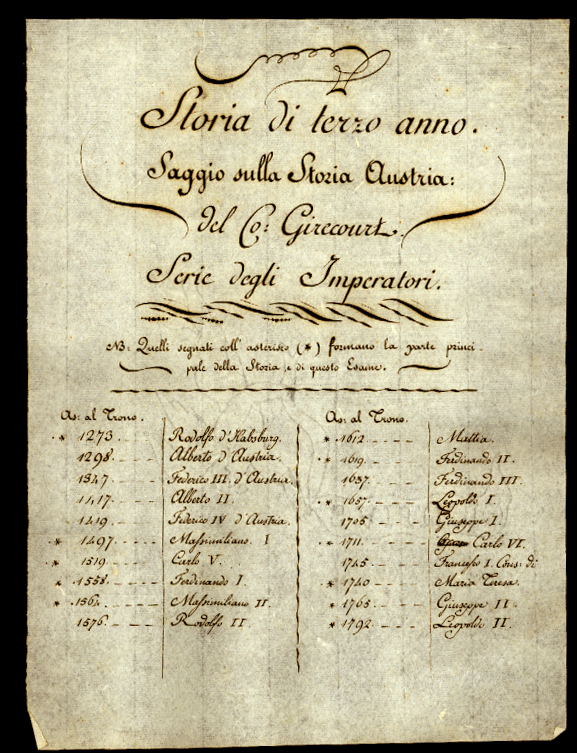 Storia di terzo anno.
Saggio sulla Storia Austria:
del Co: Girecourt.
Serie degli Imperatori.
NB: Quelli segnati coll' asterisco (*) formano la parte princi-
pale della Storia, e di questo Esame.
As: al Trono.
* 1273. Rodolfo d'Habsburg.
1298. Alberto d'Austria.
1347. Federico III. d'Austria.
1417. Alberto II.
1419. Federico IV d'Austria.
* 1497. Massimiliano. I
* 1519. Carlo V.
* 1558. Ferdinando I.
* 1564. Massimiliano II.
1576. Rodolfo II.
As: al Trono.
* 1612. Mattia.
* 1619. Ferdinando II.
1637. Ferdinando III.
* 1657. Leopoldo I.
* 1705. Giuseppe I.
* 1711. Carlo VI.
1745. Francesco I. Cons: di
* 1740. Maria Teresa.
* 1765. Giuseppe II.
* 1792. Leopoldo II.